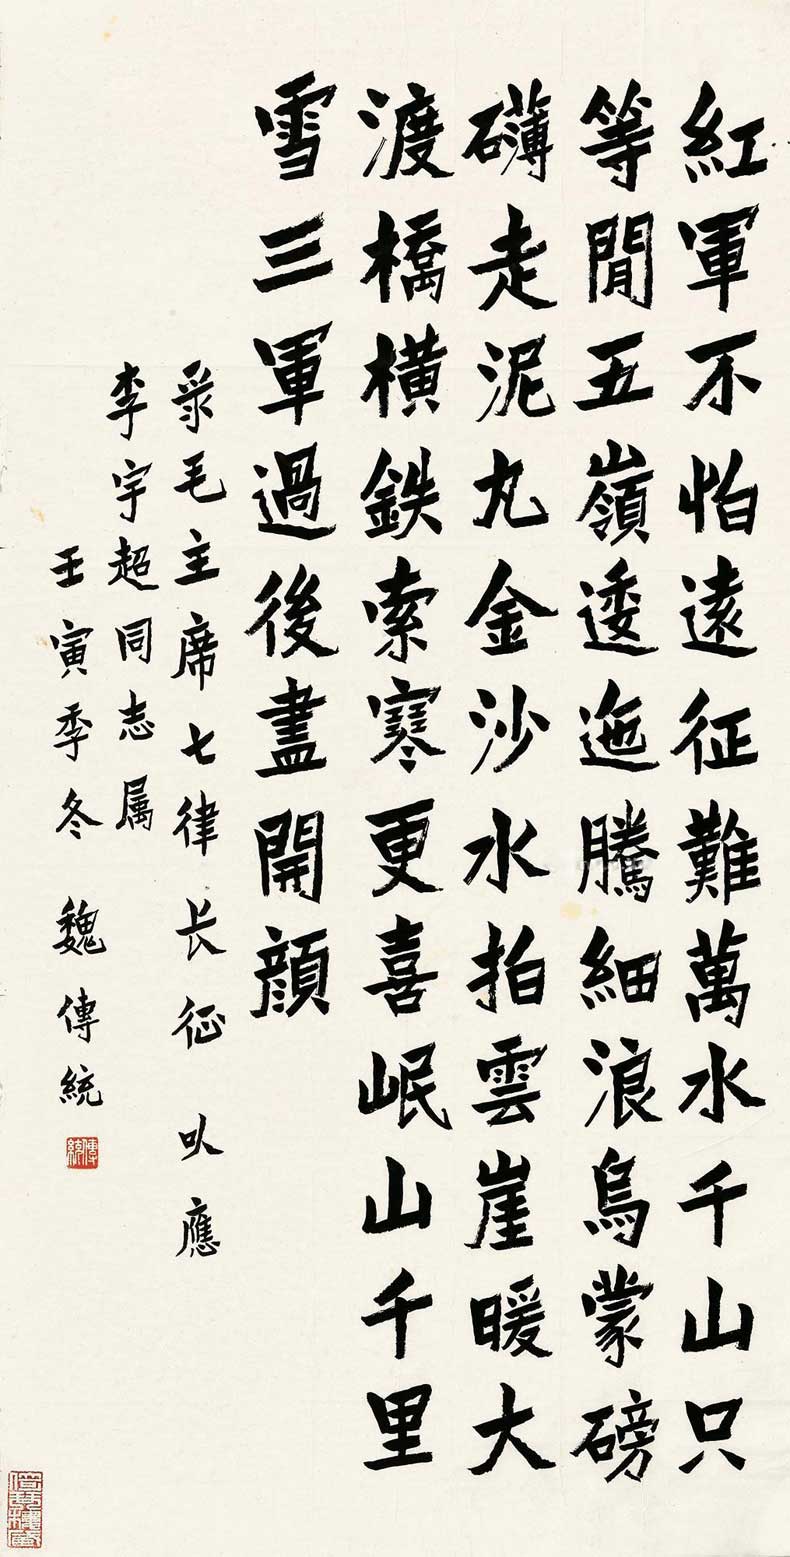 紅軍不怕遠征難萬水千山只
等閒五嶺逶迤騰細浪烏蒙磅
礴走泥丸金沙水拍雲崖暖大
渡橋橫鉄索寒更喜岷山千里
雪三軍過後盡開顏
录毛主席七律长征 以應
李宇超同志属
壬寅季冬 魏傳統
傳統